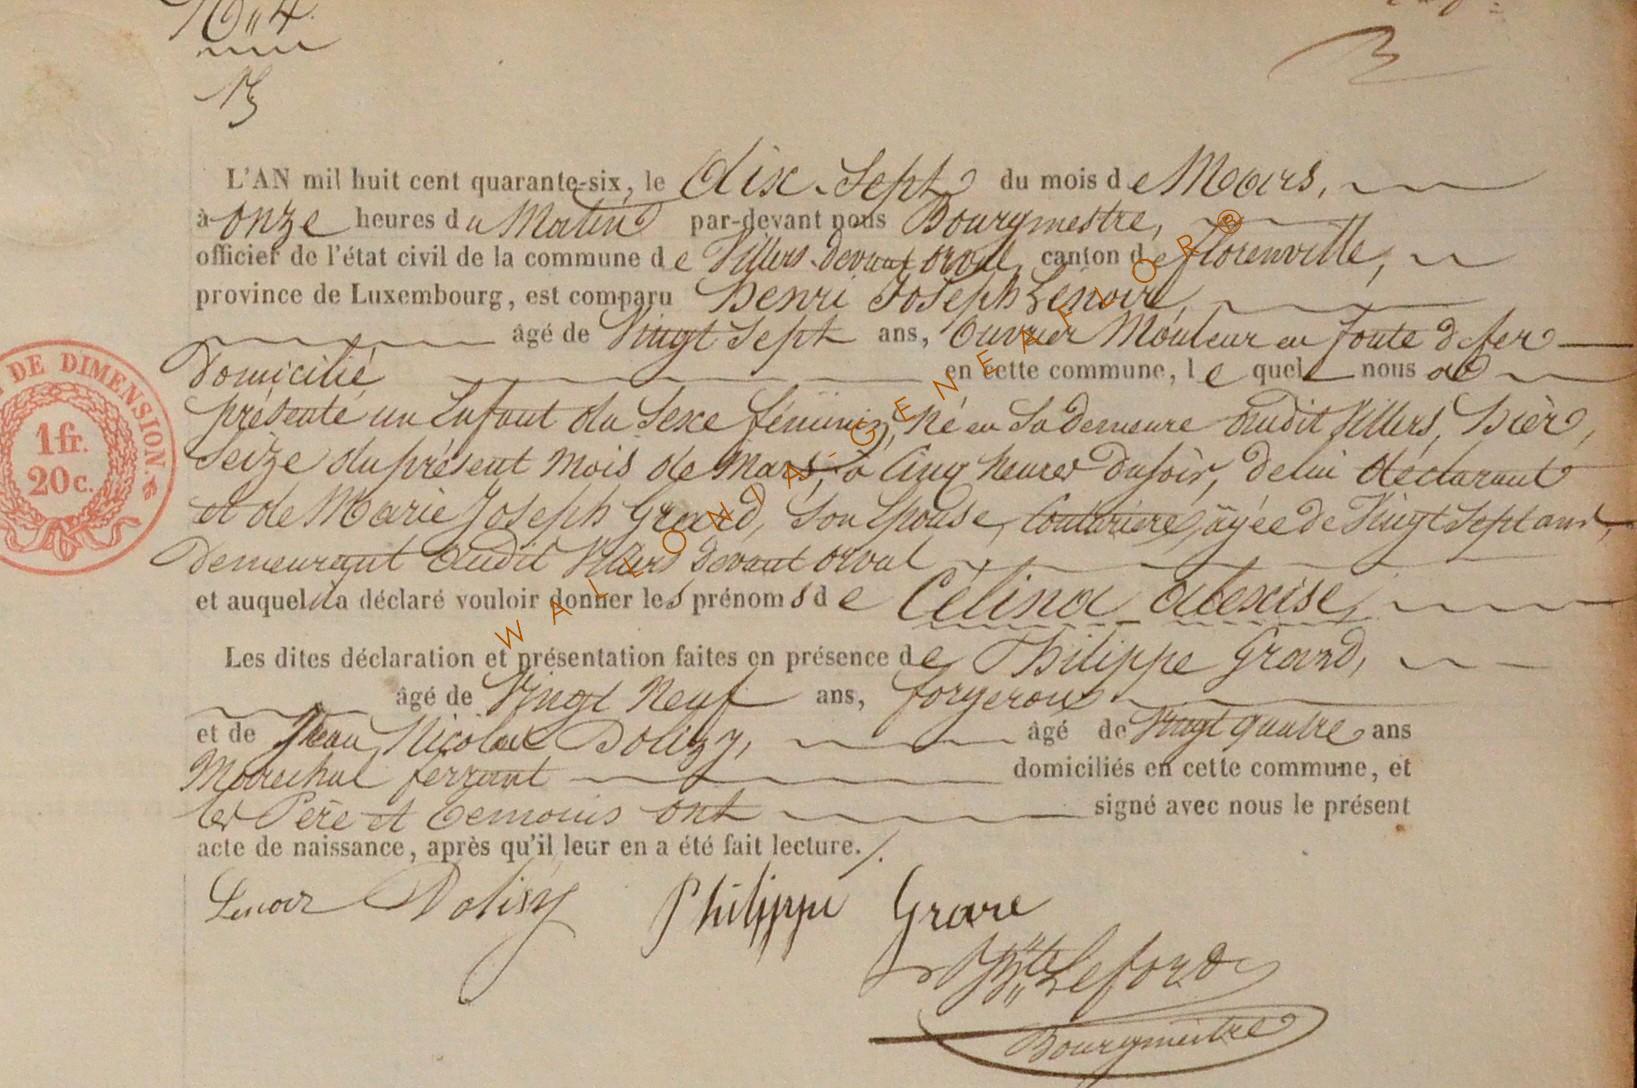 N° 4.
L'AN mil huit cent quarante-six, le dix-Sept du mois de Mars,
à onze heures du Matin par-devant nous Bourgmestre,
officier de l'état civil de la commune de Villers-devant orval, canton de florenville,
province de Luxembourg, est comparu henri Joseph Lenoir,
âgé de Vingt Sept ans, Ouvrier Mouleur en fonte de fer
Domicilié en cette commune, le quel nous a
présenté un Enfant du Sexe féminin, Né en Sa demeure audit Villers, hier,
Seize du présent Mois de Mars, à Cinq heures du soir, de lui déclarant
et de Marie Joseph Grand, Son épouse, Couturiere, âgée de Vingt Sept ans,
Demeurant audit Villers devant orval
et auquel il a déclaré vouloir donner les prénoms de Célina Alexise,
Les dites déclaration et présentation faites en présence de Philippe Grand,
âgé de Vingt Neuf ans, forgeron
et de Jean Nicolas Douzy, âgé de Vingt quatre ans
Marechal ferrant domiciliés en cette commune, et
les Père et temoins ont signé avec nous le présent
acte de naissance, après qu'il leur en a été fait lecture./.
Lenoir Dolisy Philippe Grare
Lefort
Bourgmestre
DE DIMENSION.
1 fr.
20 c.
WALLONIA-GENEAFLOR®